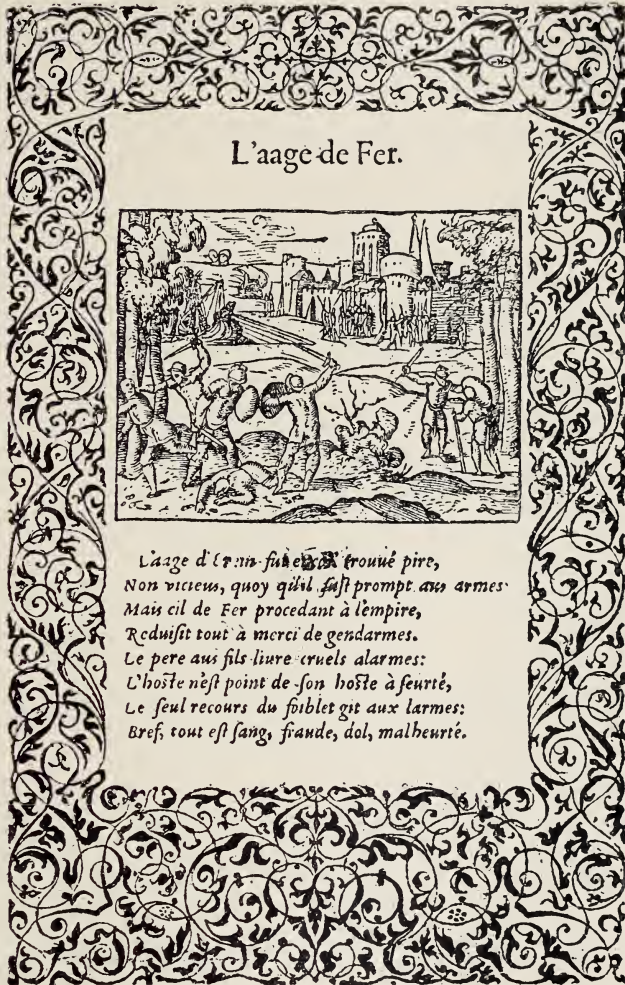 L'aage de Fer.
L'aage d'Erain fut trouué pire,
Non vicieus, quoy qu'il fust prompt aus armes:
Mais cil de Fer procedant à l'empire,
Reduisit tout à merci de gendarmes.
Le pere aus fils liure cruels alarmes:
L'hoste n'est point de son hoste à seurté,
Le seul recours du foiblet git aux larmes:
Bref, tout est sang, fraude, dol, malheurté.